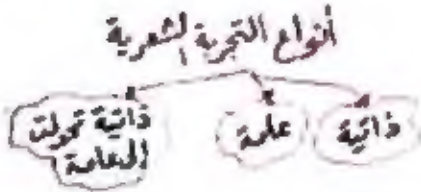 أنواع التجربة الشعرية
ذاتية
عامة
ذاتية تحولت
إلى عامة